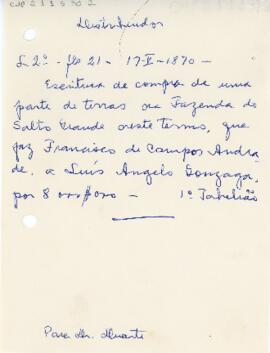 Distribuidor
L 2º - fls 21 - 17-V-1870 -
Escritura de compra de uma
parte de terras na Fazenda do
Salto Grande neste termo, que
faz Francisco de Campos Andra
de, a Luís Angelo Gonzaga,
por 8 000$000 - 1º Tabelião
Para Dr. Duarte